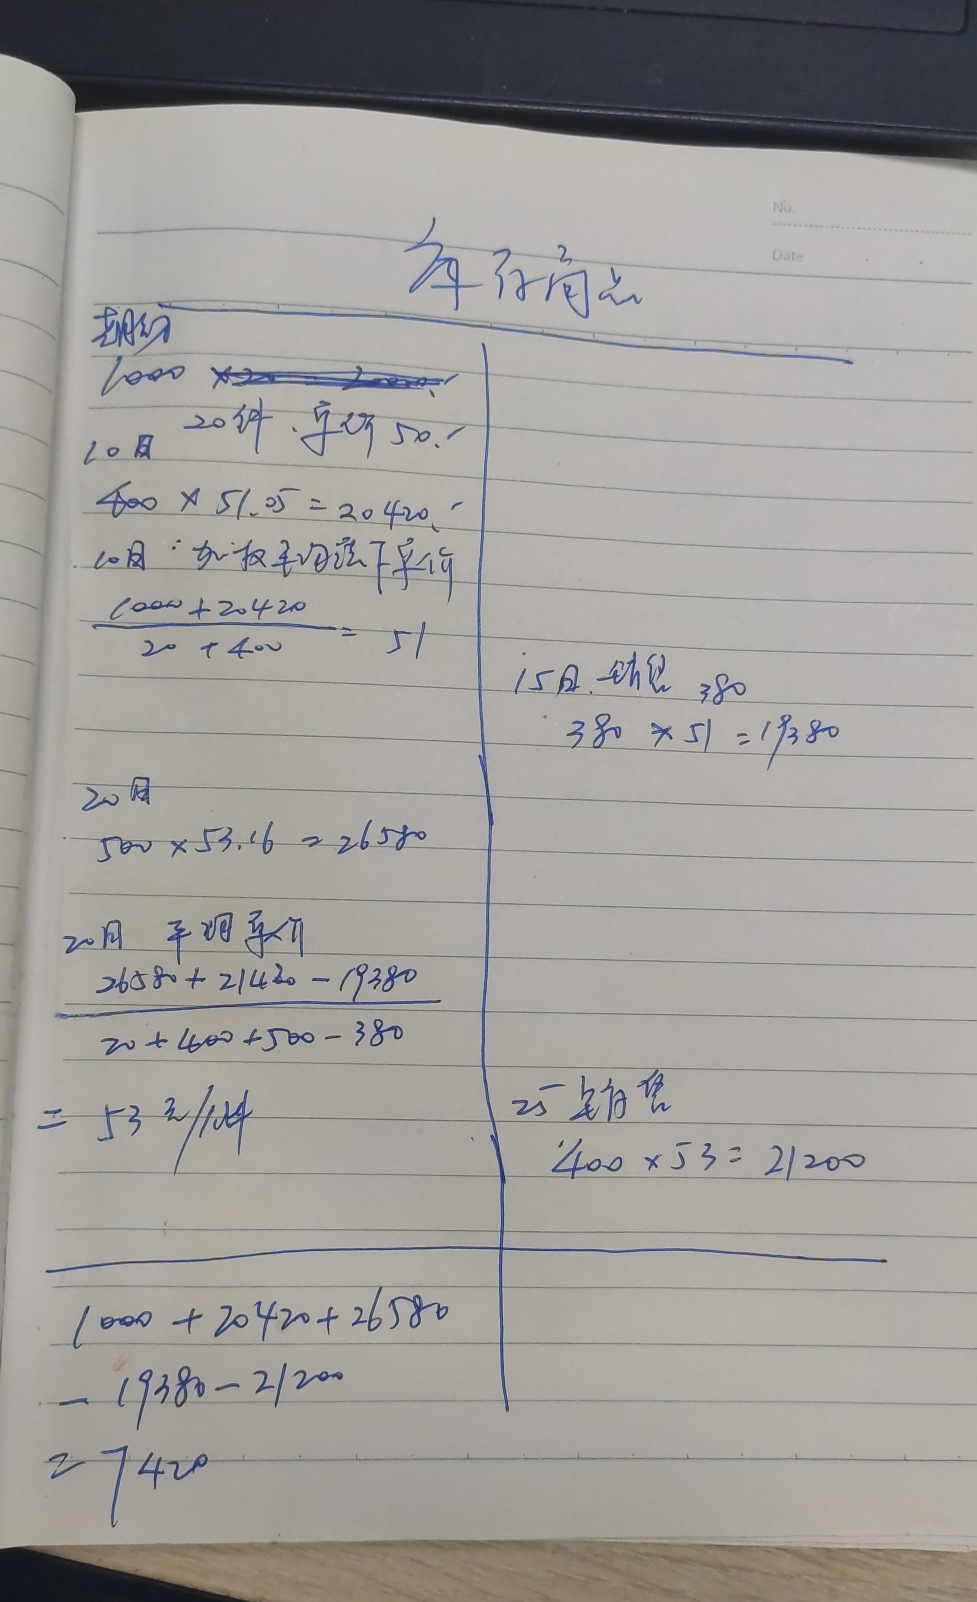 No.
Date
库存商品
期初
1000
20件.单价50.
10日
400 × 51.05 = 20420.
10日:加权平均法下单价
1000 + 20420
20 + 400
= 51
15日.销售 380
380 × 51 = 19380
20日
500 × 53.16 = 26580
20日 平均单价
26580 + 21420 - 19380
20 + 400 + 500 - 380
= 53元/件
25 销售
400 × 53 = 21200
1000 + 20420 + 26580
- 19380 - 21200
= 7420